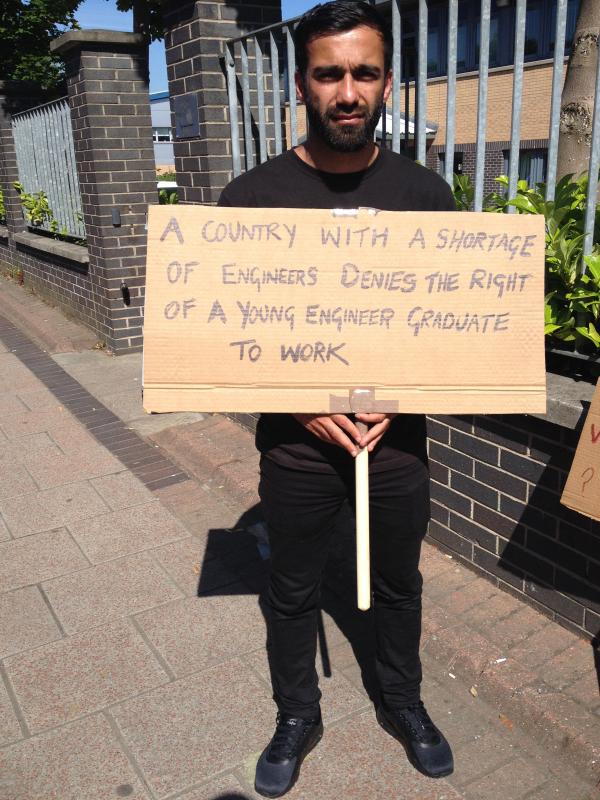 A COUNTRY WITH A SHORTAGE
OF ENGINEERS DENIES THE RIGHT
OF A YOUNG ENGINEER GRADUATE
TO WORK
?